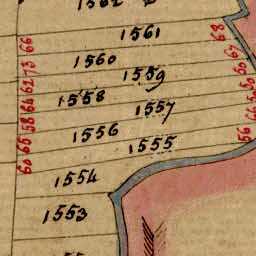 1562
1561
1560
1559
1558
1557
1556
1555
1554
1553
66
73
62
64
58
65
60
68
67
56